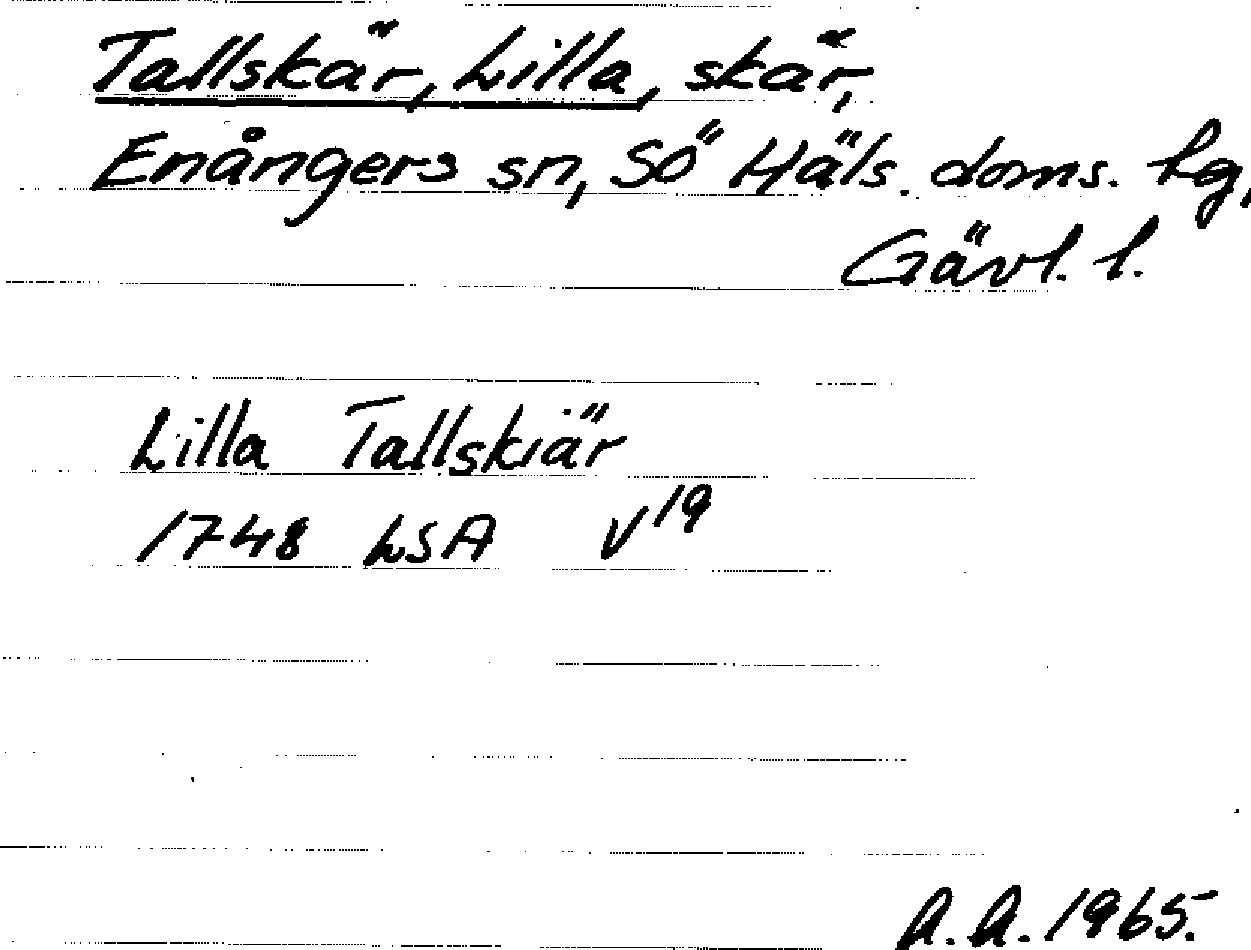 Tallskär, Lilla, skär,
Enångers sn, SÖ Häls. doms. hg,
Gävl. l.
Lilla Tallskiär
1748 LSA V19
A.A. 1965.